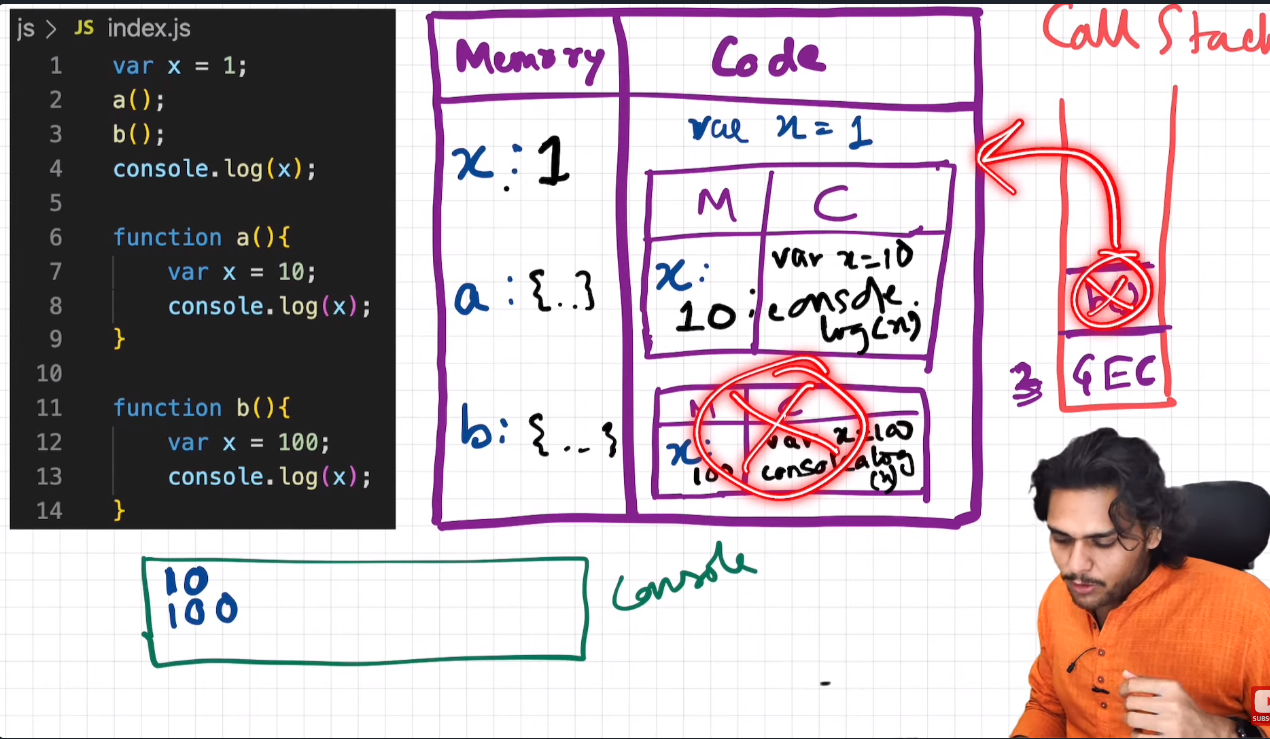 js > JS index.js
1 var x = 1;
2 a();
3 b();
4 console.log(x);
5
6 function a(){
7 var x = 10;
8 console.log(x);
9 }
10
11 function b(){
12 var x = 100;
13 console.log(x);
14 }
Memory Code
x : 1
a : {..}
b : {..}
var x = 1
M C
x:
10
var x=10
console.
log(x)
M C
x:
100
var x=100
console.log
(x)
Call Stack
b()
3 GEC
10
100
Console
SUBS